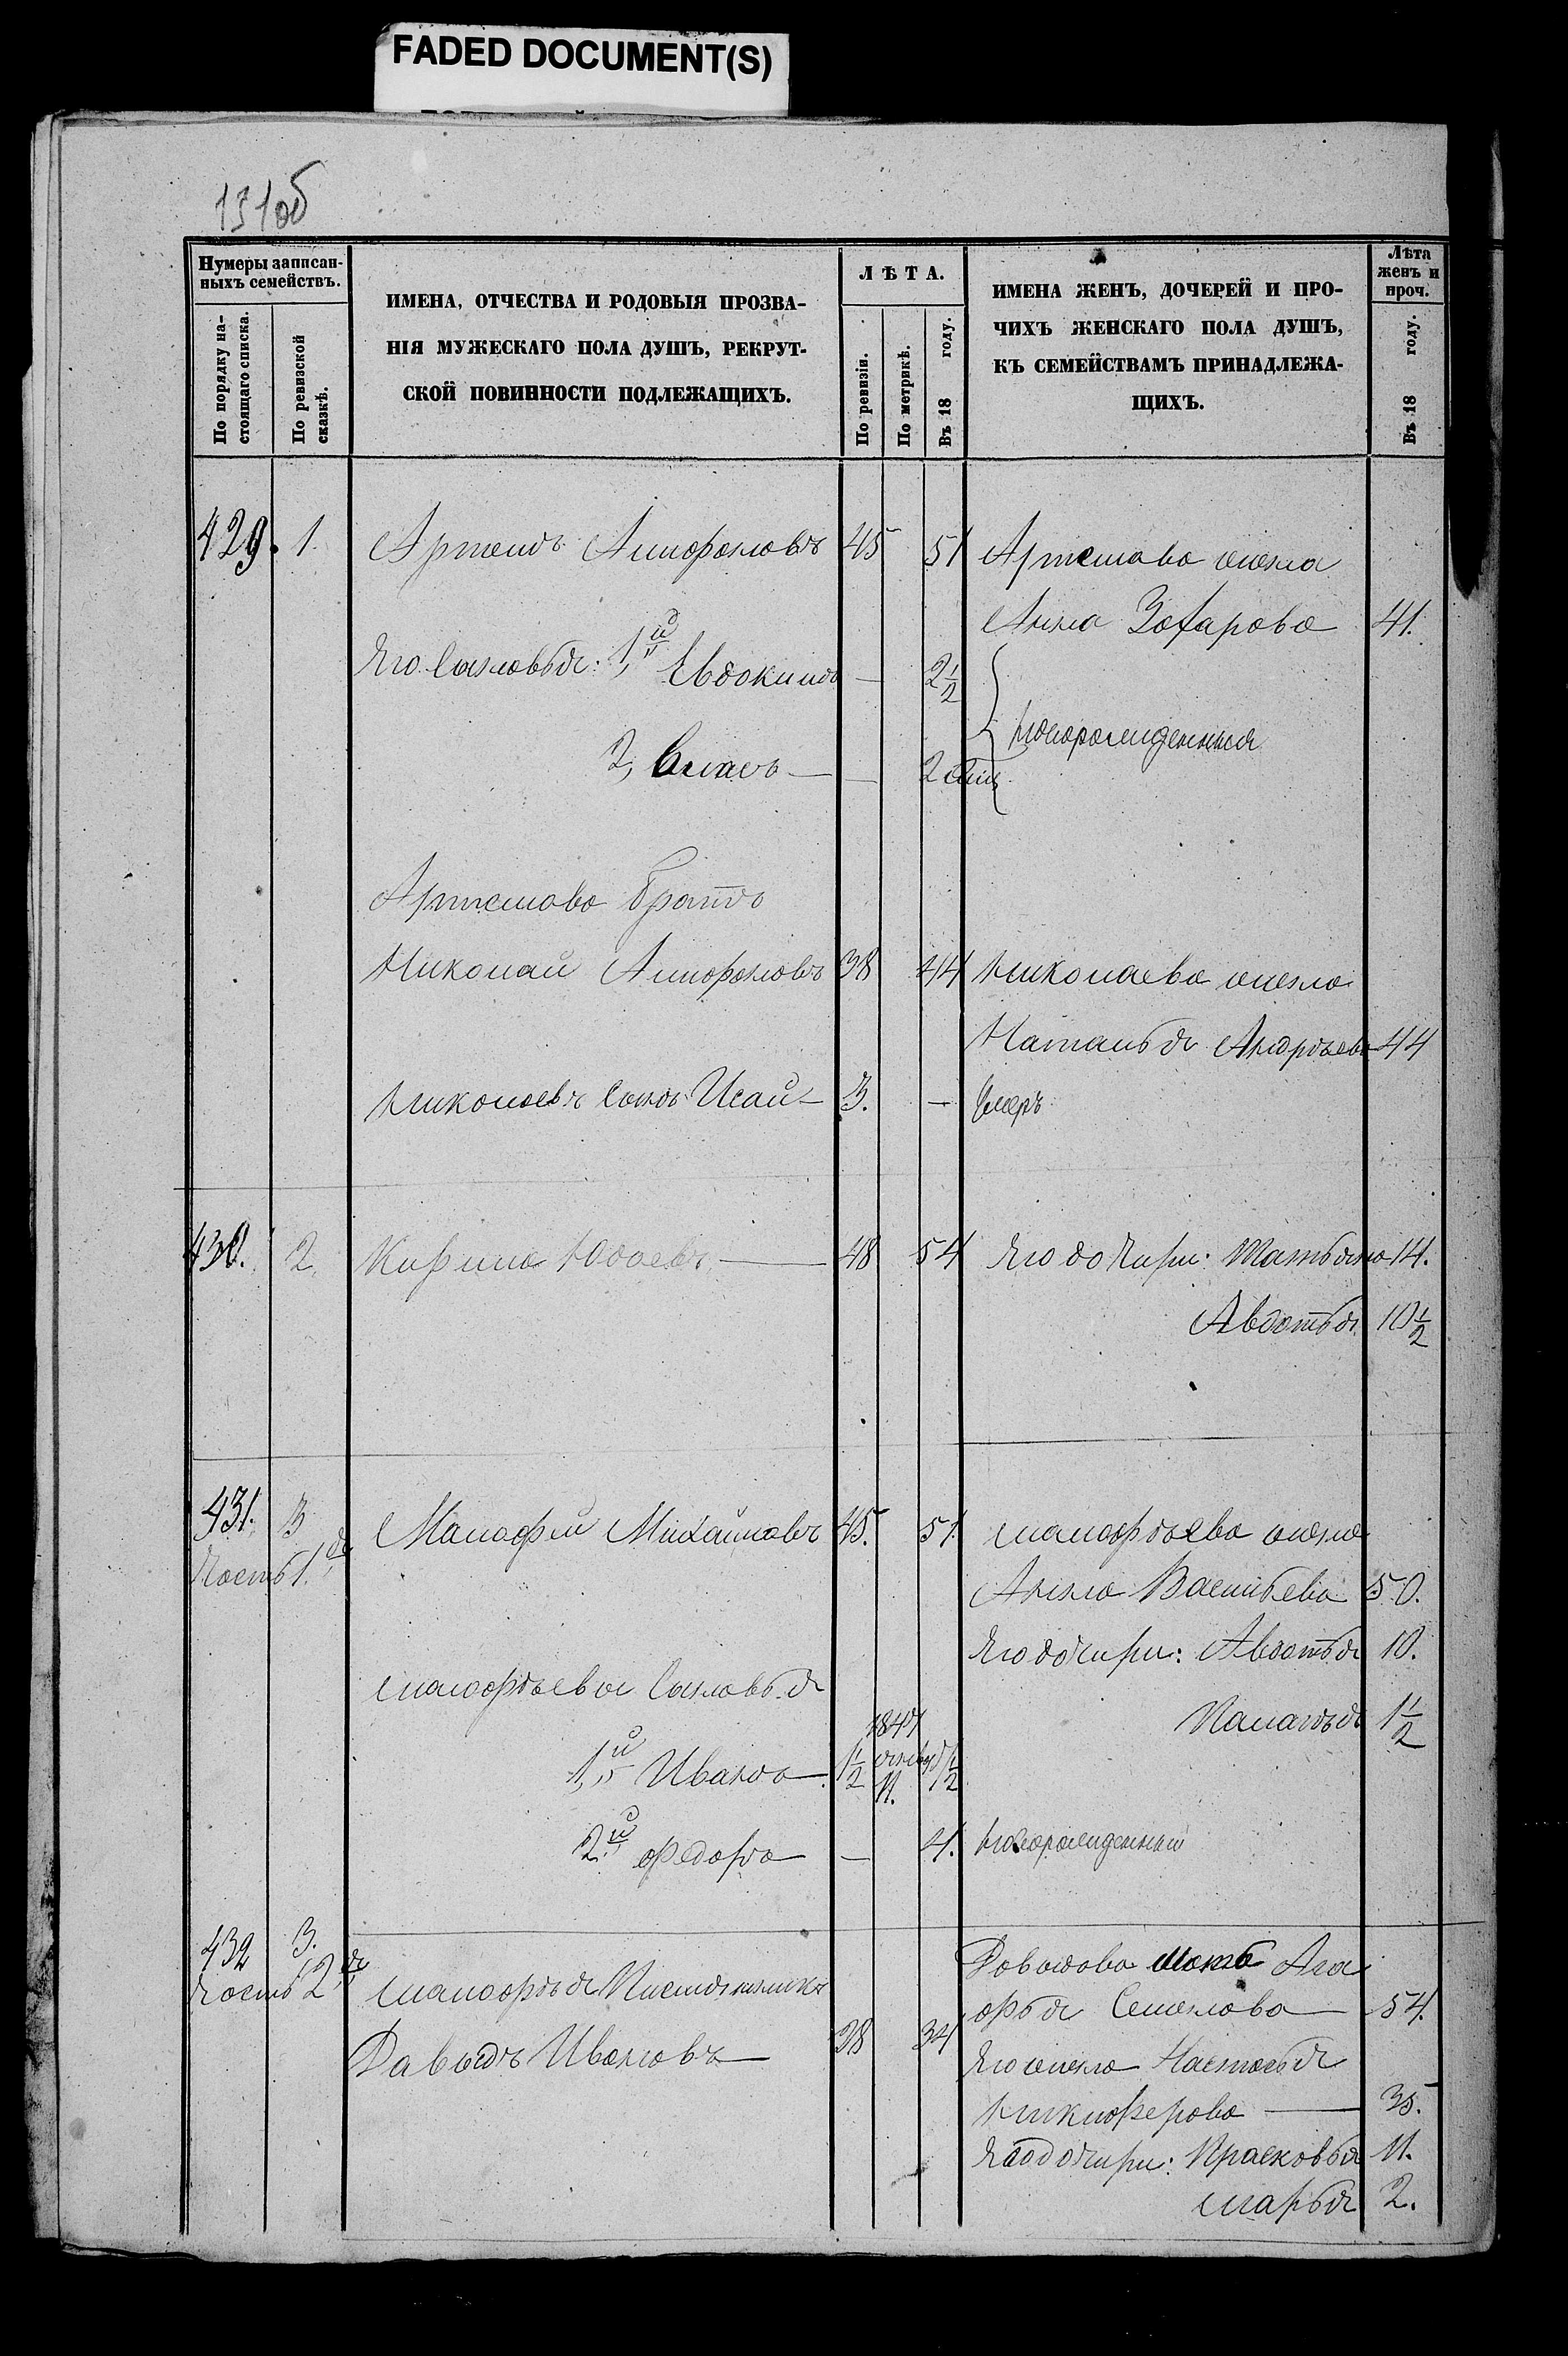 FADED DOCUMENT(S)
131об
Нумеры записан-
ныхъ семействъ.
По порядку на-
стоящаго списка.
По ревизской
сказкѣ.
ИМЕНА, ОТЧЕСТВА И РОДОВЫЯ ПРОЗВА-
НІЯ МУЖЕСКАГО ПОЛА ДУШЪ, РЕКРУТ-
СКОЙ ПОВИННОСТИ ПОДЛЕЖАЩИХЪ.
ЛѢТА.
По ревизіи.
По метрикѣ.
Въ 18 году.
ИМЕНА ЖЕНЪ, ДОЧЕРЕЙ И ПРО-
ЧИХЪ ЖЕНСКАГО ПОЛА ДУШЪ,
КЪ СЕМЕЙСТВАМЪ ПРИНАДЛЕЖА-
ЩИХЪ.
Лѣта
женъ и
проч.
Въ 18 году.
429. 1. Артемъ 45 51 Артемова жена
Анна Захарова 41.
Его Сыновья: 1й Евдокимъ — 2½
новорожденныя
2, Власъ — — 2
Артемова братъ
Николай 38 44 Николаева жена
Наталья Андрѣева 44
Николаевъ Сынъ Исай — 3. — умеръ
430. 2. Кирила — 48 54 Его дочери: Татьяна 14.
Авдотья 10½
431. 3 Малафей Михайловъ 45. 51. Малафѣева жена
Часть 1я
Анна Васильева 50.
Его дочери: Авдотья 10.
Малафѣевы Сыновья
Палагѣя 1½
1й Иванъ — 1½ 11.
2й Федоръ — — 4. новорожденный
432 3. Давыдова Мать Ага
Часть 2я Малафѣя Племянникъ
фья Семенова — 54.
Давыдъ Ивановъ — 28 34
Его жена Настасья
Никиферова — 35.
Его дочери: Прасковья 11.
Марья 2.